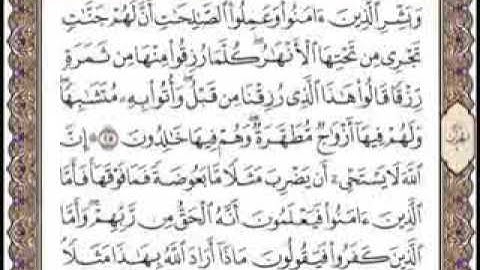 وَبَشِّرِ ٱلَّذِينَ ءَامَنُوا۟ وَعَمِلُوا۟ ٱلصَّٰلِحَٰتِ أَنَّ لَهُمْ جَنَّٰتٍ
تَجْرِى مِن تَحْتِهَا ٱلْأَنْهَٰرُ ۖ كُلَّمَا رُزِقُوا۟ مِنْهَا مِن ثَمَرَةٍ
رِّزْقًا قَالُوا۟ هَٰذَا ٱلَّذِى رُزِقْنَا مِن قَبْلُ ۖ وَأُتُوا۟ بِهِۦ مُتَشَٰبِهًا ۖ
وَلَهُمْ فِيهَآ أَزْوَٰجٌ مُّطَهَّرَةٌ ۖ وَهُمْ فِيهَا خَٰلِدُونَ ۝٢٥ إِنَّ
ٱللَّهَ لَا يَسْتَحْىِۦٓ أَن يَضْرِبَ مَثَلًا مَّا بَعُوضَةً فَمَا فَوْقَهَا ۚ فَأَمَّا
ٱلَّذِينَ ءَامَنُوا۟ فَيَعْلَمُونَ أَنَّهُ ٱلْحَقُّ مِن رَّبِّهِمْ ۖ وَأَمَّا
ٱلَّذِينَ كَفَرُوا۟ فَيَقُولُونَ مَاذَآ أَرَادَ ٱللَّهُ بِهَٰذَا مَثَلًا ۘ